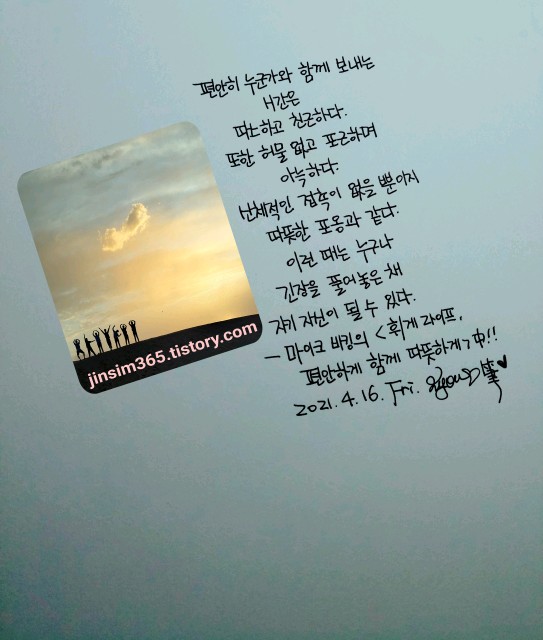 편안히 누군가와 함께 보내는
시간은
따스하고 친근하다.
또한 허물 없고 포근하며
아늑하다.
신체적인 접촉이 없을 뿐이지
따뜻한 포옹과 같다.
이런 때는 누구나
긴장을 풀어놓은 채
자기 자신이 될 수 있다.
- 마이크 비킹의 <휘게 라이프,
편안하게 함께 따뜻하게> 中!!
2021. 4. 16. Fri. 筆♥
jinsim365.tistory.com